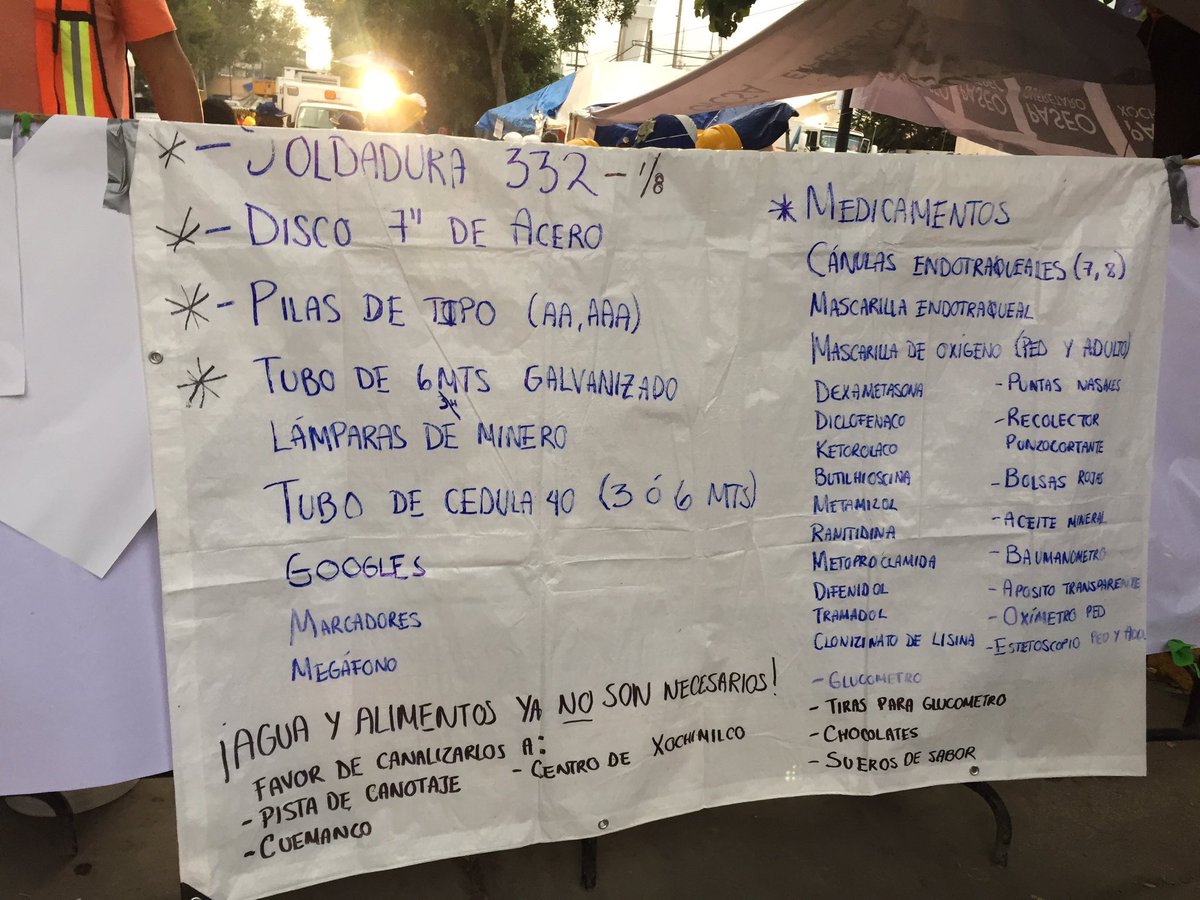 * - SOLDADURA 332 - 1/8
* - DISCO 7" DE ACERO
* - PILAS DE TIPO (AA, AAA)
* TUBO DE 6 MTS GALVANIZADO
LÁMPARAS DE MINERO
TUBO DE CEDULA 40 (3 Ó 6 MTS)
GOOGLES
MARCADORES
MEGÁFONO
¡AGUA Y ALIMENTOS YA NO SON NECESARIOS!
FAVOR DE CANALIZARLOS A:
- PISTA DE CANOTAJE
- CUEMANCO
- CENTRO DE XOCHIMILCO
* MEDICAMENTOS
CÁNULAS ENDOTRAQUEALES (7, 8)
MASCARILLA ENDOTRAQUEAL
MASCARILLA DE OXÍGENO (PED Y ADULTO)
DEXAMETASONA
DICLOFENACO
KETOROLACO
BUTILHIOSCINA
METAMIZOL
RANITIDINA
METOPROCLAMIDA
DIFENIDOL
TRAMADOL
CLONIZINATO DE LISINA
- GLUCOMETRO
- TIRAS PARA GLUCOMETRO
- CHOCOLATES
- SUEROS DE SABOR
- PUNTAS NASALES
- RECOLECTOR
PUNZOCORTANTE
- BOLSAS ROJAS
- ACEITE MINERAL
- BAUMANOMETRO
- APOSITO TRANSPARENTE
- OXÍMETRO PED
- ESTETOSCOPIO PED Y ADUL
PASEO
QUERETARO
PASEO
XOCH